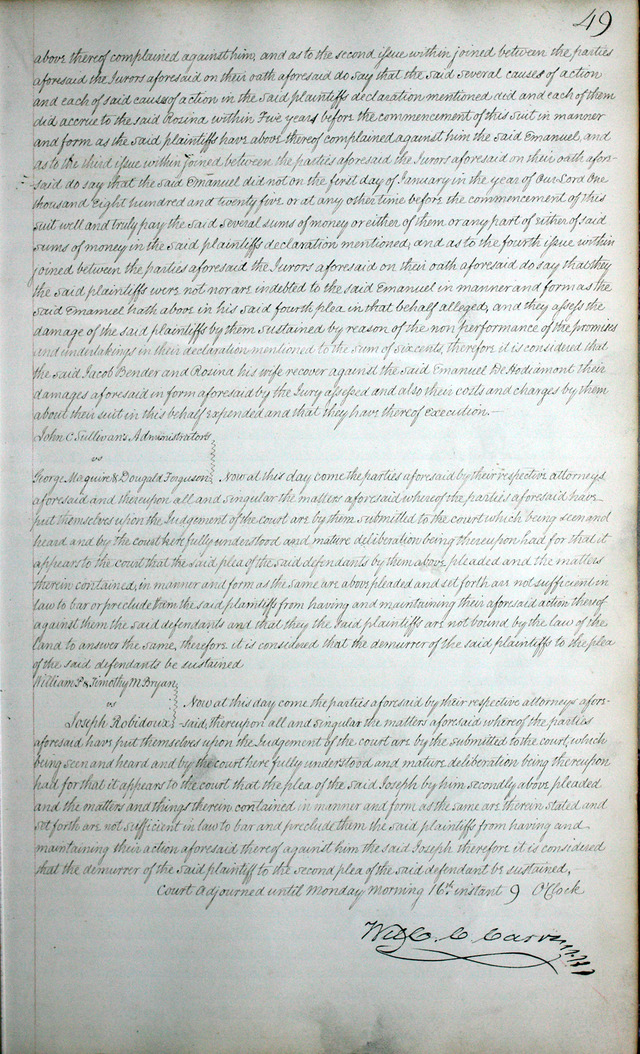 49
above thereof complained against him, and as to the second issue within joined between the parties
aforesaid the Jurors aforesaid on their oath aforesaid do say that the said several causes of action
and each of said causes of action in the said plaintiffs declaration mentioned did and each of them
did accrue to the said Rosina within Five years before the commencement of this suit in manner
and form as the said plaintiffs have above thereof complained against him the said Emanuel, and
as to the third issue within joined between the parties aforesaid the Jurors aforesaid on their oath afore-
said do say that the said Emanuel did not on the first day of January in the year of Our Lord One
thousand Eight hundred and twenty five or at any other time before the commencement of this
suit well and truly pay the said several sums of money or either of them or any part of either of said
sums of money in the said plaintiffs declaration mentioned, and as to the fourth issue within
joined between the parties aforesaid the Jurors aforesaid on their oath aforesaid do say that they
the said plaintiffs were not nor are indebted to the said Emanuel in manner and form as the
said Emanuel hath above in his said fourth plea in that behalf alleged, and they assess the
damage of the said plaintiffs by them sustained by reason of the non performance of the promises
and undertakings in their declaration mentioned to the sum of six cents, therefore it is considered that
the said Jacob Bender and Rosina his wife recover against the said Emanuel De Hodiamont their
damages aforesaid in form aforesaid by the Jury assessed and also their costs and charges by them
about their suit in this behalf expended and that they have thereof execution.—
John C Sullivan's Administrators
vs
George Maguire & Dougald Ferguson Now at this day come the parties aforesaid by their respective attorneys
aforesaid and thereupon all and singular the matters aforesaid whereof the parties aforesaid have
put themselves upon the Judgement of the court are by them submitted to the court which being seen and
heard and by the court here fully understood and mature deliberation being thereupon had for that it
appears to the court that the said plea of the said defendants by them above pleaded and the matters
therein contained, in manner and form as the same are above pleaded and set forth are not sufficient in
law to bar or preclude them the said plaintiffs from having and maintaining their aforesaid action thereof
against them the said defendants and that they the said plaintiffs are not bound by the law of the
land to answer the same, therefore it is considered that the demurrer of the said plaintiffs to the plea
of the said defendants be sustained
William P & Timothy M Bryan
vs Now at this day come the parties aforesaid by their respective attorneys afore-
Joseph Robidoux said, thereupon all and singular the matters aforesaid whereof the parties
aforesaid have put themselves upon the Judgement of the court are by the submitted to the court, which
being seen and heard and by the court here fully understood and mature deliberation being thereupon
had for that it appears to the court that the plea of the said Joseph by him secondly above pleaded
and the matters and things therein contained in manner and form as the same are therein stated and
set forth are not sufficient in law to bar and preclude them the said plaintiffs from having and
maintaining their action aforesaid thereof against him the said Joseph therefore it is considered
that the demurrer of the said plaintiff to the second plea of the said defendant be sustained,—
Court Adjourned until Monday Morning 16th instant 9 O'Clock
C Carr